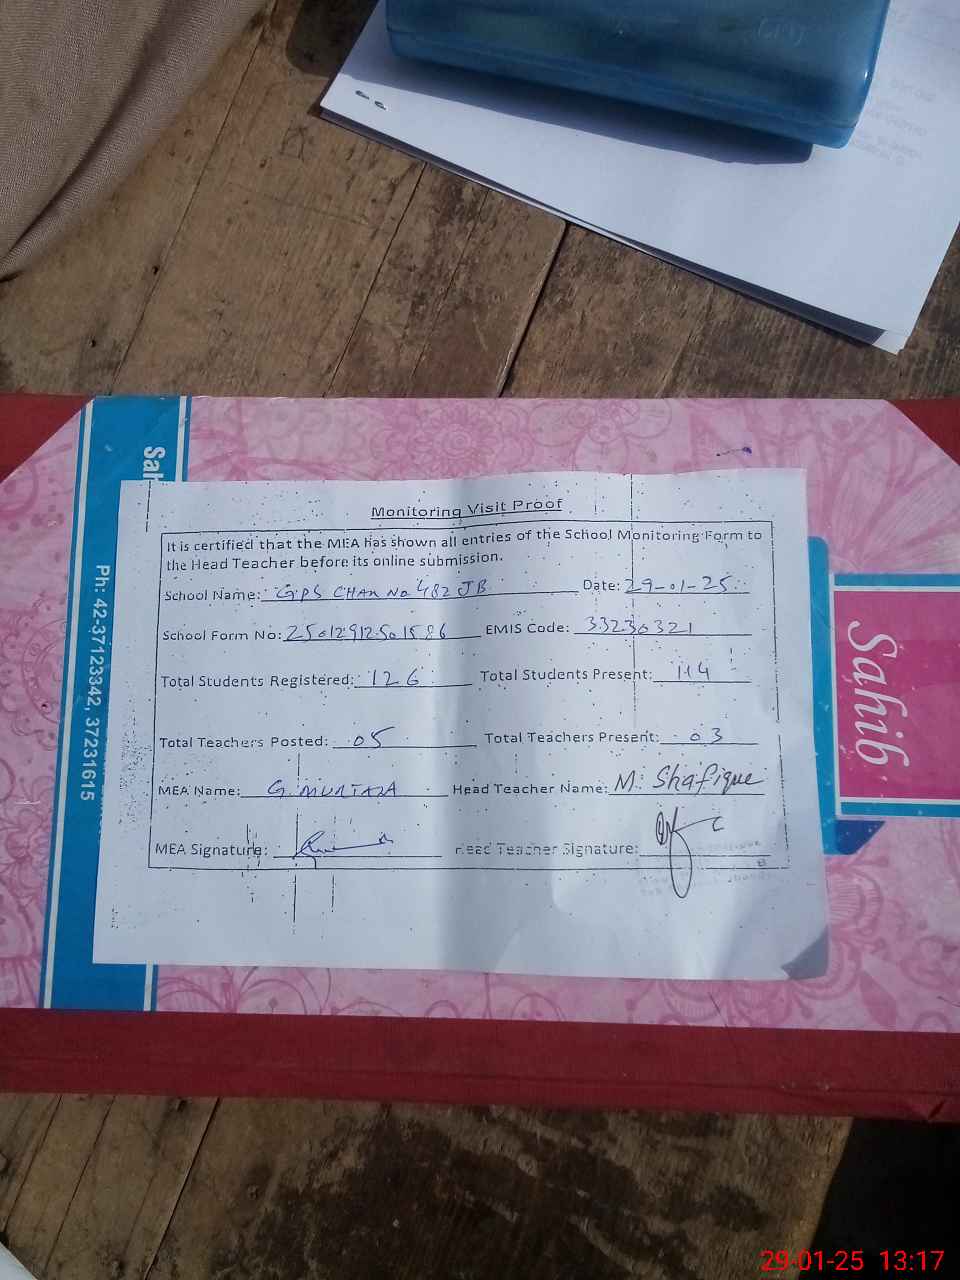 Monitoring Visit Proof
It is certified that the MEA has shown all entries of the School Monitoring Form to
the Head Teacher before its online submission.
School Name: GPS CHAK No 482 JB Date: 29-01-25
School Form No: 25012912501586 EMIS Code: 33230321
Total Students Registered: 126 Total Students Present: 114
Total Teachers Posted: 05 Total Teachers Present: 03
MEA Name: G. MURTAZA Head Teacher Name: M. Shafique
MEA Signature: Head Teacher Signature:
Sahib
Ph: 42-37123342, 37231615
29-01-25 13:17